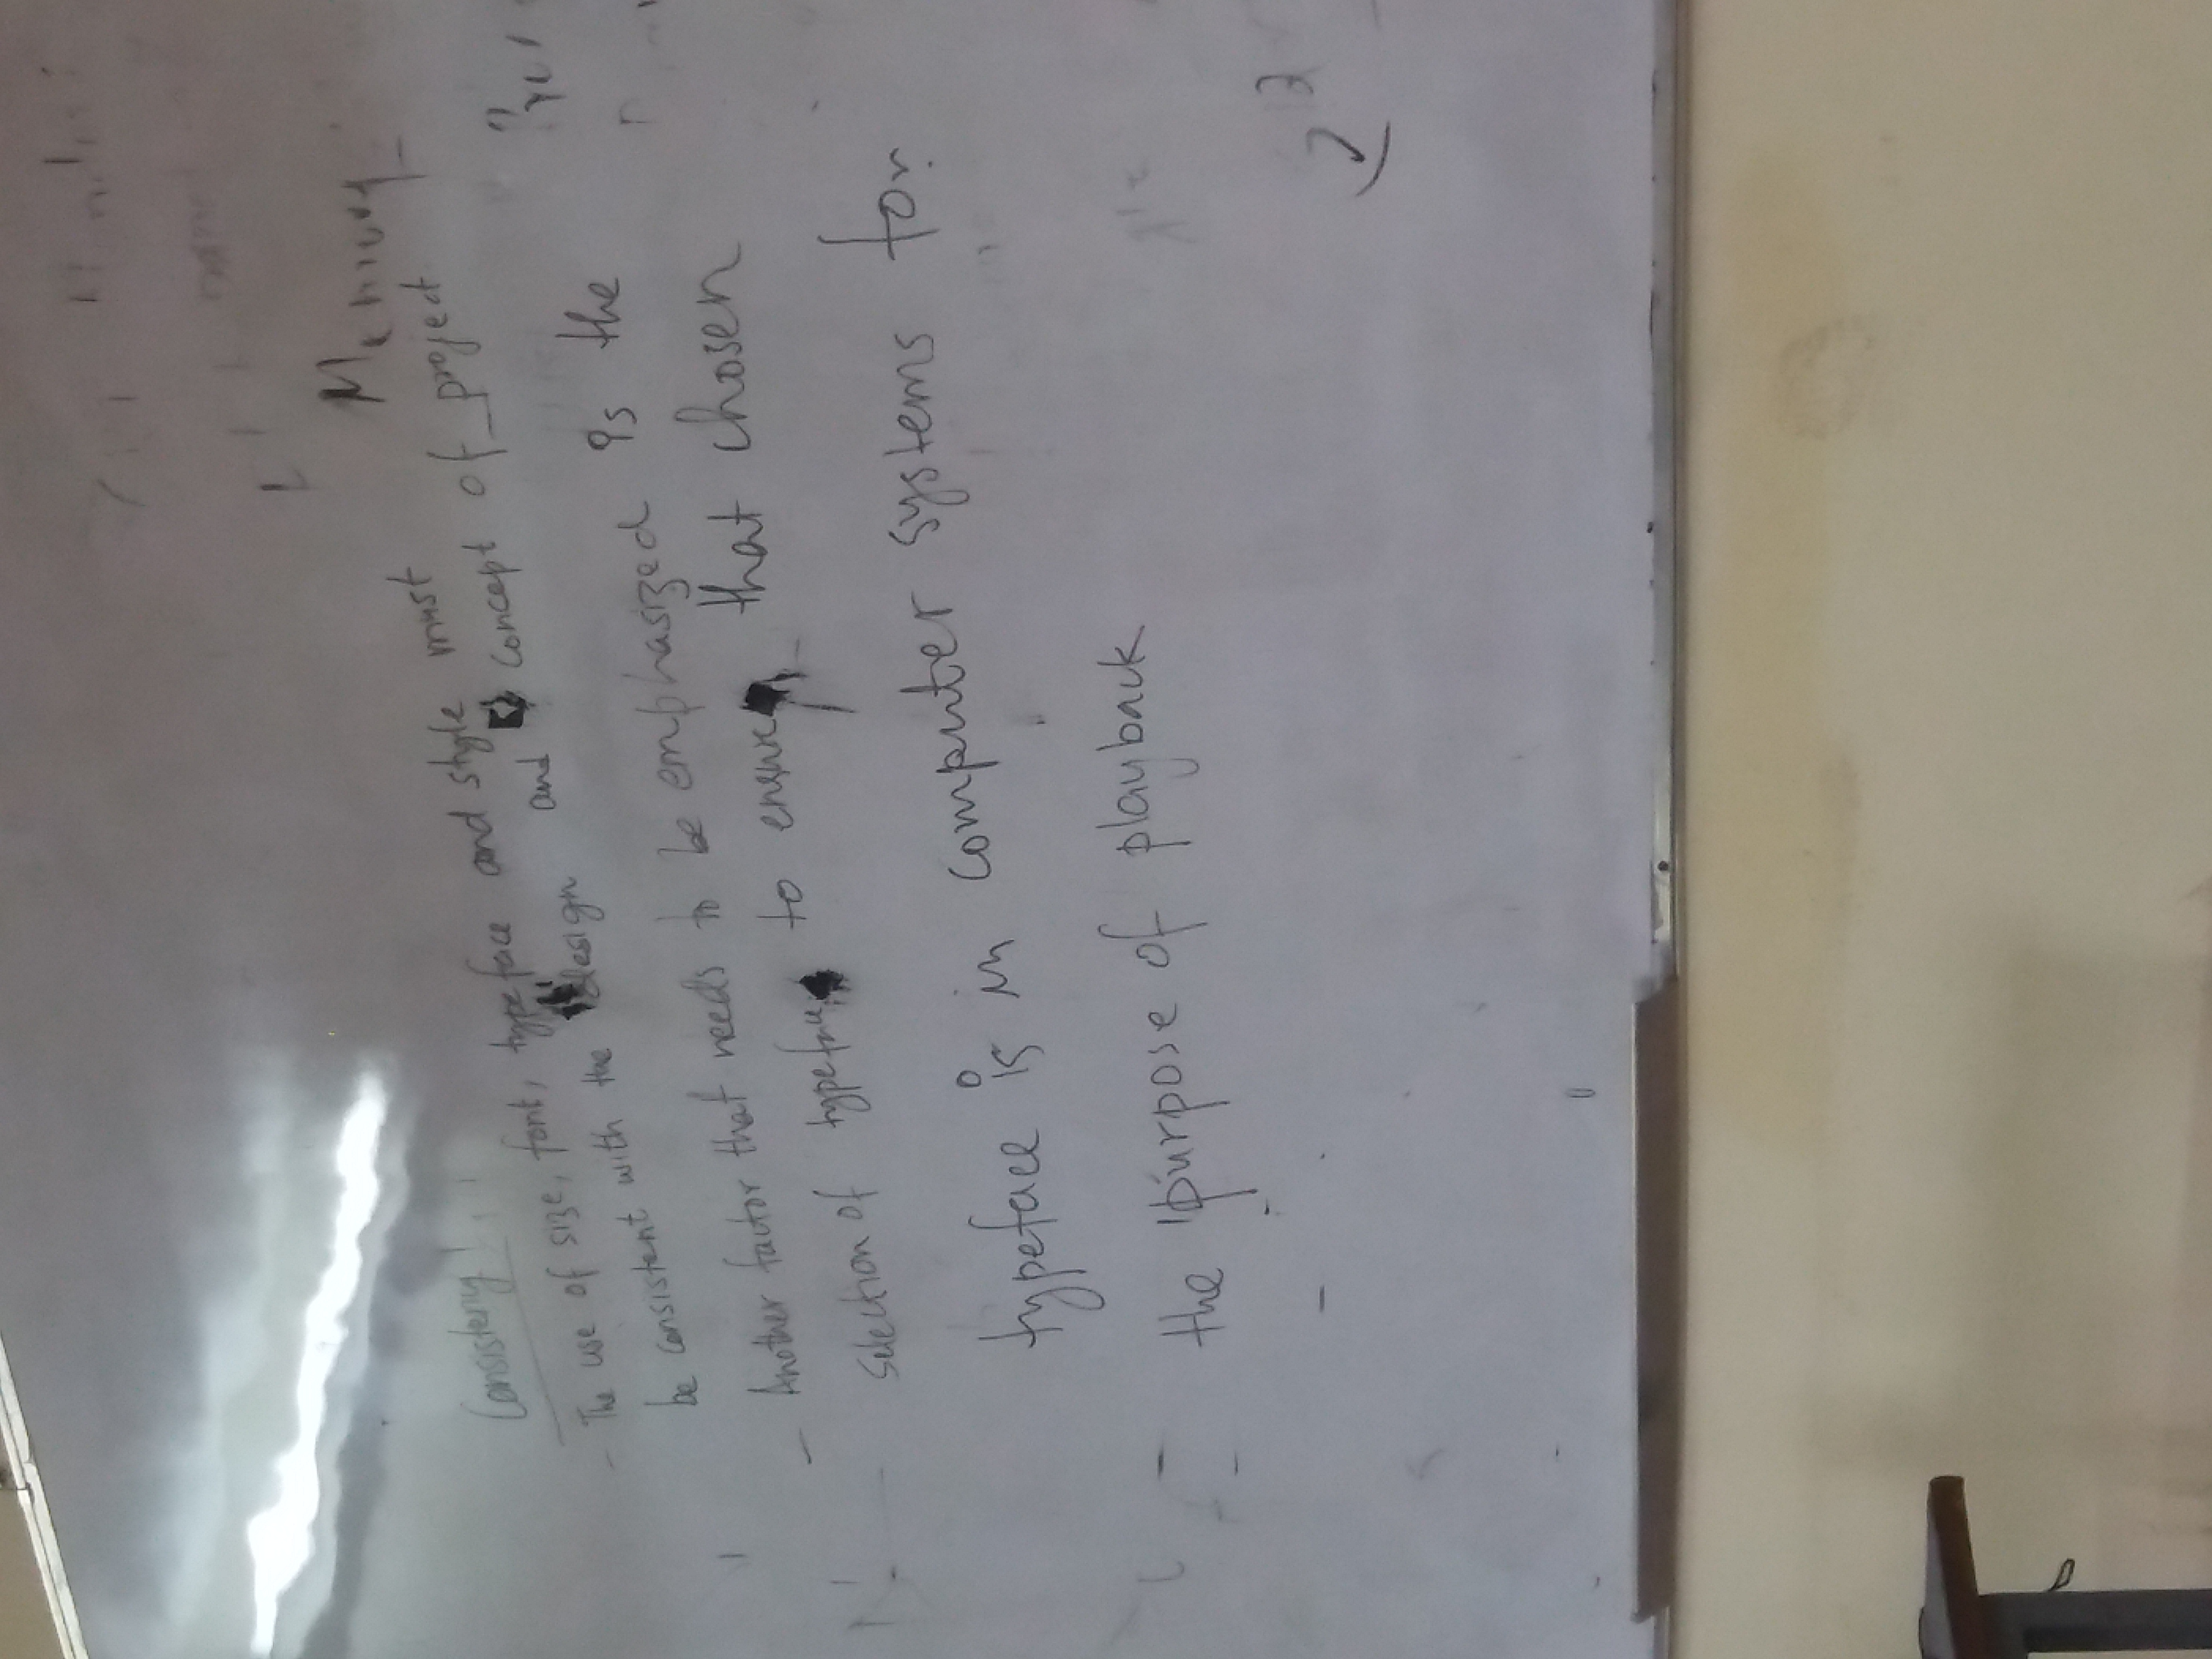 Consistency!
- The use of size, font, typeface and style must
be consistent with the design and concept of project
- Another factor that needs to be emphasized is the
selection of typeface to ensure that chosen
typeface is in computer systems for
the purpose of playback